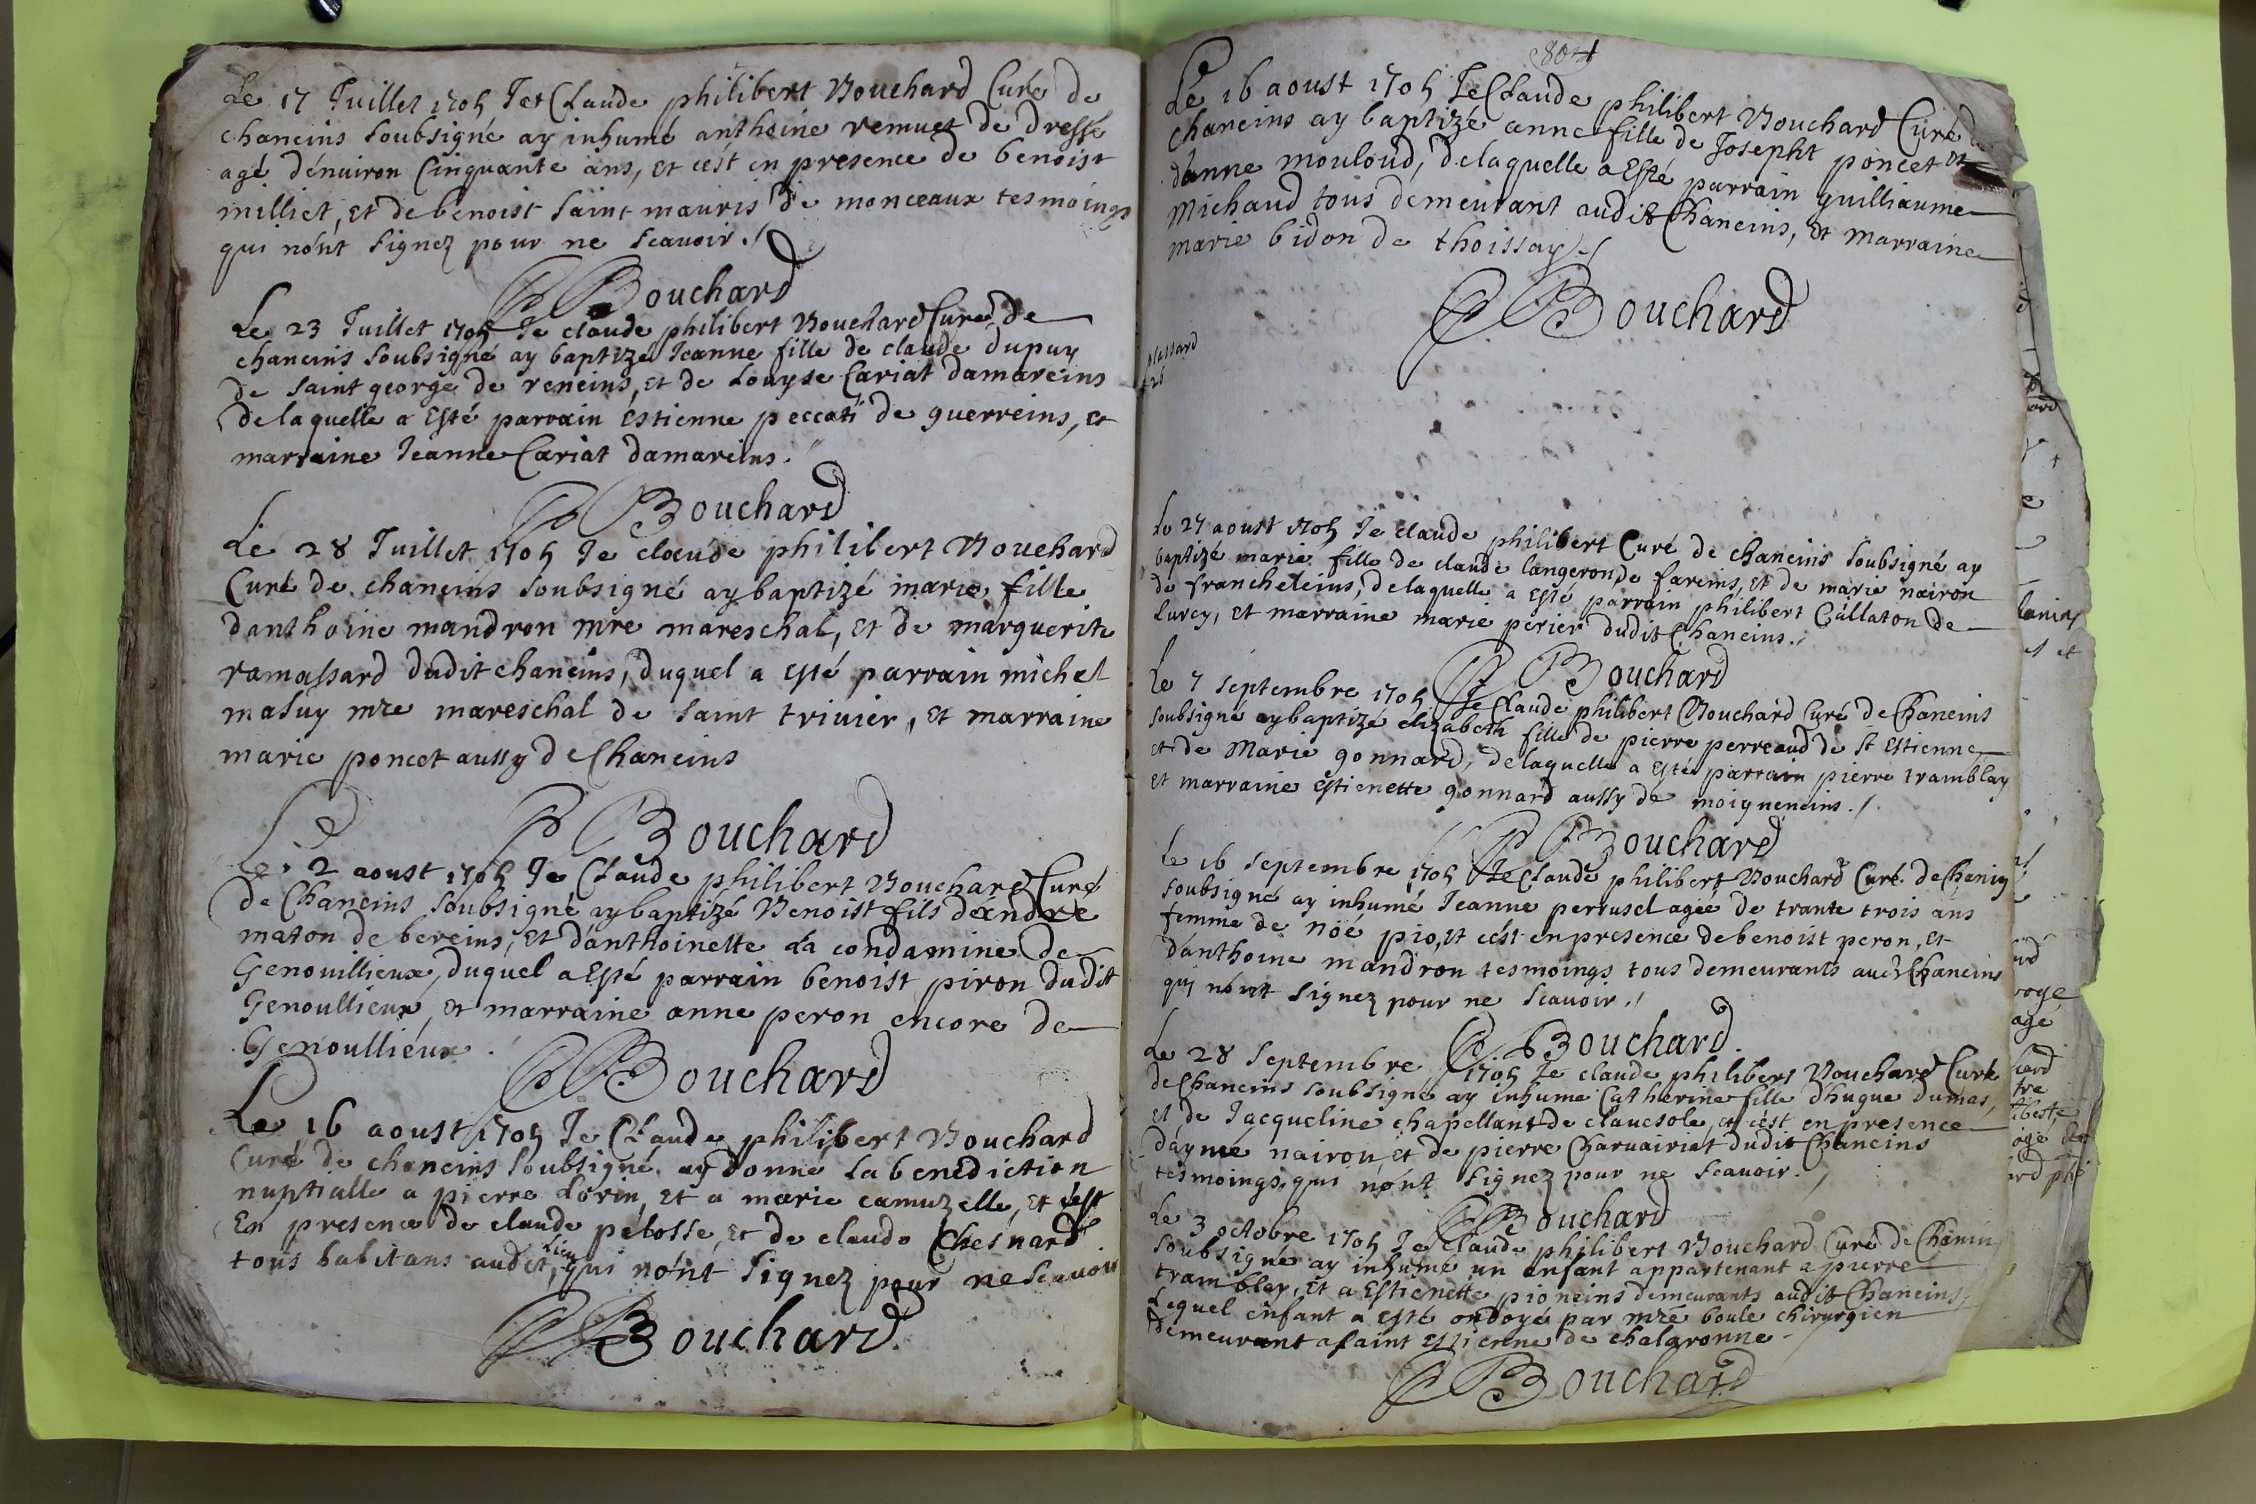 Le 17 Juillet 1705 Je Claude philibert Bouchard Curé de
chaneins soubsigné ay inhumé anthoine remuet de dresse
agé dénuiron Cinquante ans, et cést en presence de benoist
milliet, et de benoist saint mauris de monceaux tesmoings
qui nónt signez pour ne scauoir ./
Bouchard
Le 23 Juillet 1705 Je claude philibert Bouchard Curé de
chaneins soubsigné ay baptizé Jeanne fille de claude dupuy
de saint george de reneins, et de Louyse Cariat damareins
delaquelle a Esté parrain Estienne peccati de guerreins, et
marraine Jeanne Cariat damareins.
Bouchard
Le 28 Juillet 1705 Je claude philibert Bouchard
Curé de chaneins soubsigné ay baptizé marie fille
danthoine mandron mre mareschal, et de marguerite
ramassard dudit chaneins, duquel a esté parrain michel
masuy mre mareschal de saint triuier, et marraine
marie poncet aussy de Chaneins
Bouchard
Le 2 aoust 1705 Je Claude philibert Bouchard Curé
de Chaneins soubsigné ay baptizé Benoist fils dandre
maton de bereins, et danthoinette La condamine de
Genouillieux, duquel a Esté parrain benoist piron dudit
Genoullieux, et marraine anne peron encore de
Genoullieux.
Bouchard
Le 16 aoust 1705 Je Claude philibert Bouchard
Curé de chaneins soubsigné ay donne La benediction
nuptialle a pierre Lorin, et a marie camuzelle, et cést
En presence de claude pelosse, et de claude Chesnard
tous habitans audit lieu, qui nónt signez pour ne scauoir
Bouchard
804
Le 16 aoust 1705 Je Claude philibert Bouchard Curé de
chaneins ay baptizé anne fille de Josepht poncet et
danne mouloud, delaquelle a Esté parrain guilliaume
Michaud tous demeurant audit Chaneins, et marraine
marie bidon de thoissay ./
Bouchard
Le 27 aoust 1705 Je claude philibert Curé de chaneins soubsigné ay
baptizé marie fille de claude langeron de fareins, et de marie nairon
de francheleins, delaquelle a esté parrain philibert Callaton de
Lurcy, et marraine marie perier dudit Chaneins ./
Bouchard
Le 7 septembre 1705 Je Claude philibert Bouchard Curé de Chaneins
soubsigné ay baptizé elizabeth fille de pierre perreaud de st Estienne
et de Marie gonnard, delaquelle a Esté parrain pierre tramblay
et marraine Estienette gonnard aussy de moigneneins ./
Bouchard
Le 16 septembre 1705 Je Claude philibert Bouchard Curé de Chanins
soubsigné ay inhumé Jeanne perrusel agée de trante trois ans
femme de nöé pio, et cést en presence de benoist peron, et
danthoine mandron tesmoings tous demeurants audt Chaneins
qui nónt signez pour ne scauoir ./
Bouchard
Le 28 septembre 1705 Je claude philibert Bouchard Curé
de Chaneins soubsigné ay inhumé Catherine fille dhugue dumas,
et de Jacqueline chapellant de clauesole, et cést en presence
daymé nairon, et de pierre Charuairiat dudit Chaneins
tesmoings, qui nónt signez pour ne scauoir ./
Bouchard
Le 3 octobre 1705 Je Claude philibert Bouchard Curé de Chanein
soubsigné ay inhumé un enfant appartenant a pierre
tramblay, et a Estienette pioneins demeurants audit Chaneins,
Lequel enfant a esté ondoyé par mre boule chirurgien
demeurant a saint Estienne de chalaronne
Bouchard